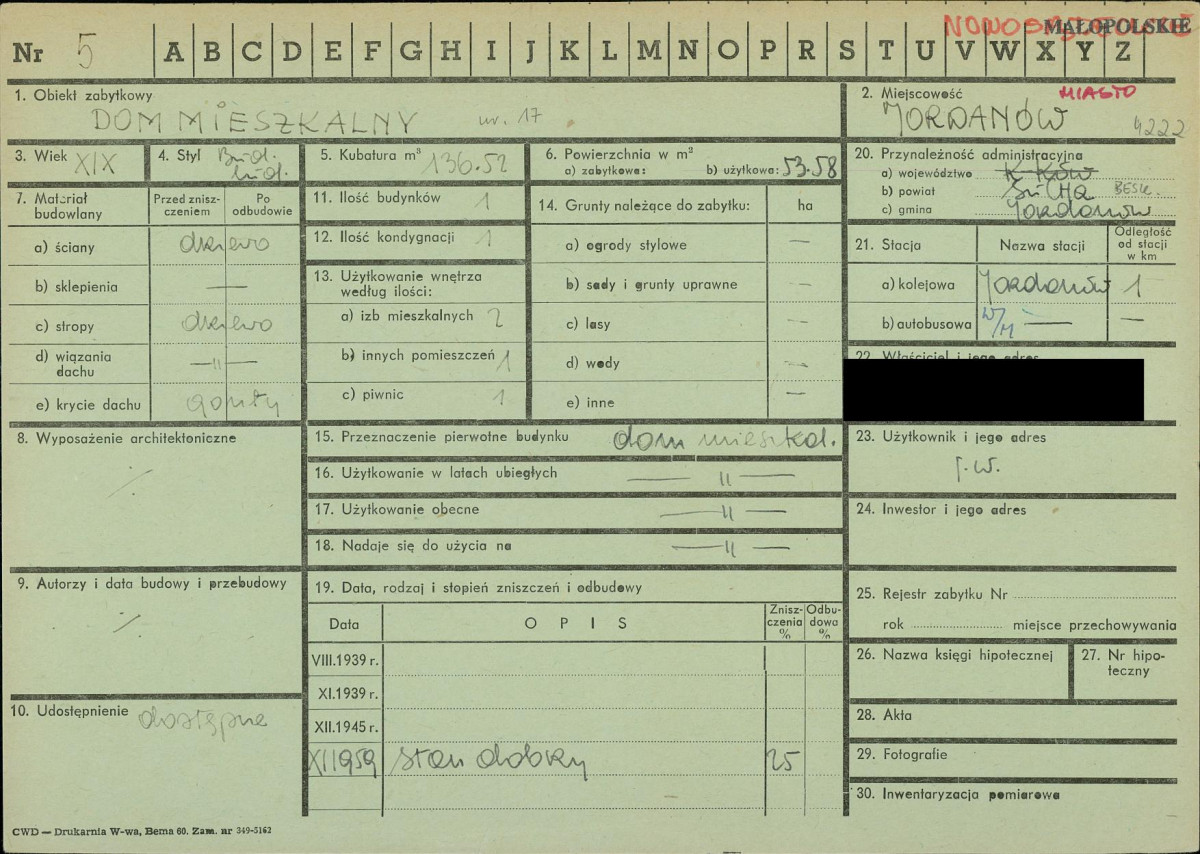 NOWOSĄDECKIE MAŁOPOLSKIE
Nr 5 A B C D E F G H I J K L M N O P R S T U V W X Y Z
1. Obiekt zabytkowy
DOM MIESZKALNY nr. 17
2. Miejscowość MIASTO
JORDANÓW 4222
3. Wiek XIX
4. Styl Bud. lud.
5. Kubatura m³ 136.52
6. Powierzchnia w m²
a) zabytkowa: b) użytkowa: 53.58
7. Materiał budowlany
Przed zniszczeniem
Po odbudowie
a) ściany drzewo
b) sklepienia —
c) stropy drzewo
d) wiązania dachu —"—
e) krycie dachu gonty
8. Wyposażenie architektoniczne
9. Autorzy i data budowy i przebudowy
10. Udostępnienie dostępne
11. Ilość budynków 1
12. Ilość kondygnacji 1
13. Użytkowanie wnętrza według ilości:
a) izb mieszkalnych 2
b) innych pomieszczeń 1
c) piwnic 1
14. Grunty należące do zabytku: ha
a) ogrody stylowe —
b) sady i grunty uprawne —
c) lasy —
d) wody —
e) inne —
15. Przeznaczenie pierwotne budynku dom mieszkal.
16. Użytkowanie w latach ubiegłych —"—
17. Użytkowanie obecne —"—
18. Nadaje się do użycia na —"—
19. Data, rodzaj i stopień zniszczeń i odbudowy
Data OPIS Zniszczenia % Odbudowa %
VIII.1939 r.
XI.1939 r.
XII.1945 r.
XII 1959 stan dobry 25
20. Przynależność administracyjna
a) województwo K-ków
b) powiat Sucha BESK.
c) gmina Jordanów
21. Stacja Nazwa stacji Odległość od stacji w km
a) kolejowa Jordanów 1
b) autobusowa W/M — —
22. Właściciel i jego adres
23. Użytkownik i jego adres
j.w.
24. Inwestor i jego adres
25. Rejestr zabytku Nr
rok miejsce przechowywania
26. Nazwa księgi hipotecznej
27. Nr hipoteczny
28. Akta
29. Fotografie
30. Inwentaryzacja pomiarowa
CWD — Drukarnia W-wa, Bema 60. Zam. nr 349-5162